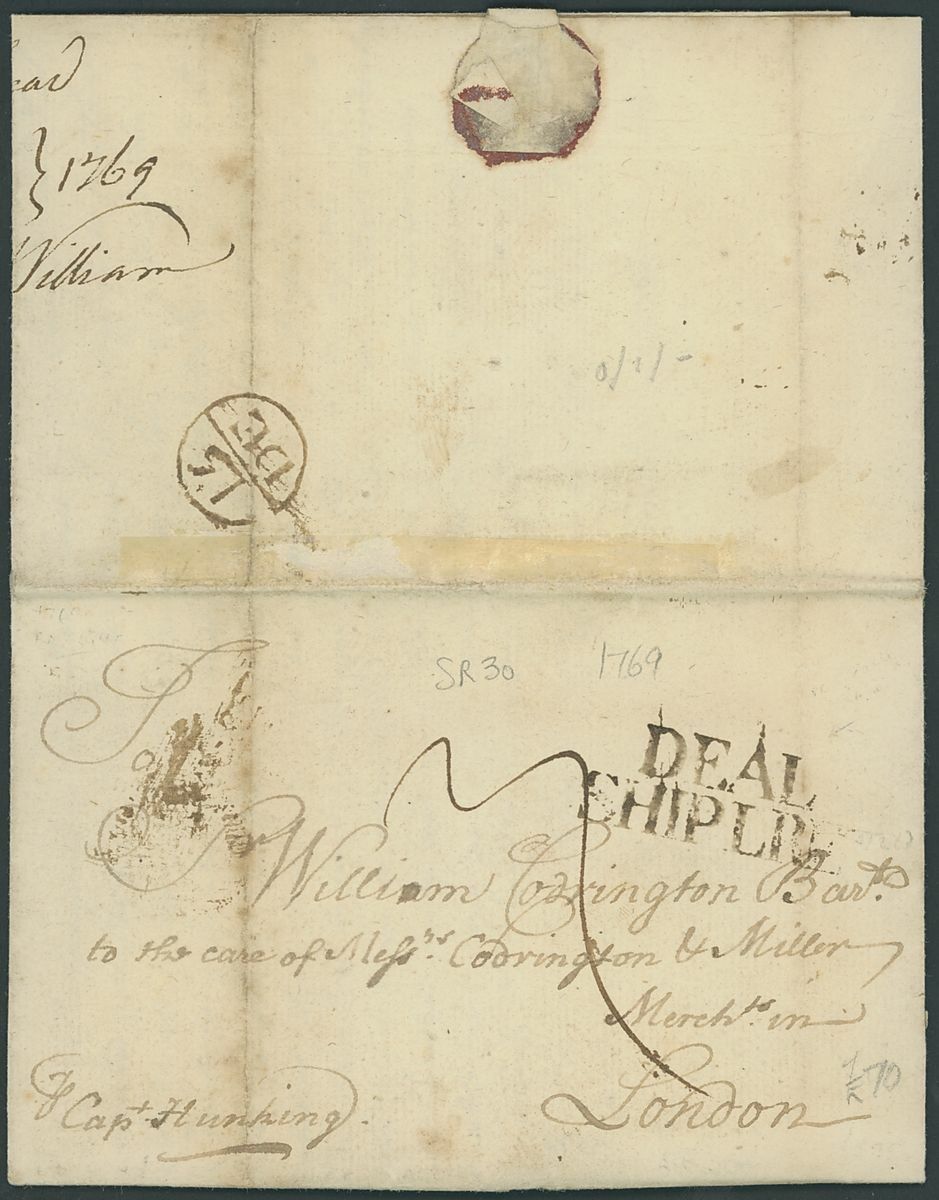 1769
William
0/1/-
DE
SR 30 1769
DEAL
SHIP LRE
To
Sr William Codrington Bart.
to the care of Messrs. Codrington & Miller
Merchts. in
London
70
Capt. Hunking.